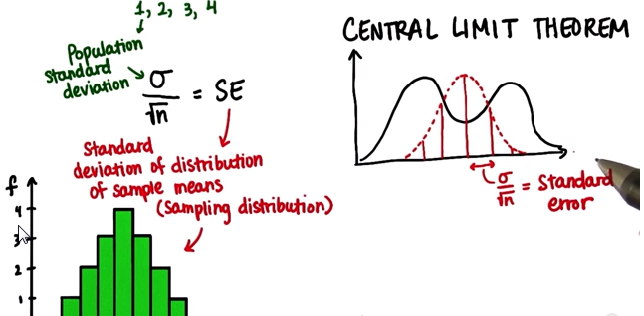 1, 2, 3, 4
Population
standard
deviation
σ/√n = SE
Standard
deviation of distribution
of sample means
(Sampling distribution)
f
4
3
2
1
CENTRAL LIMIT THEOREM
σ/√n = Standard
error